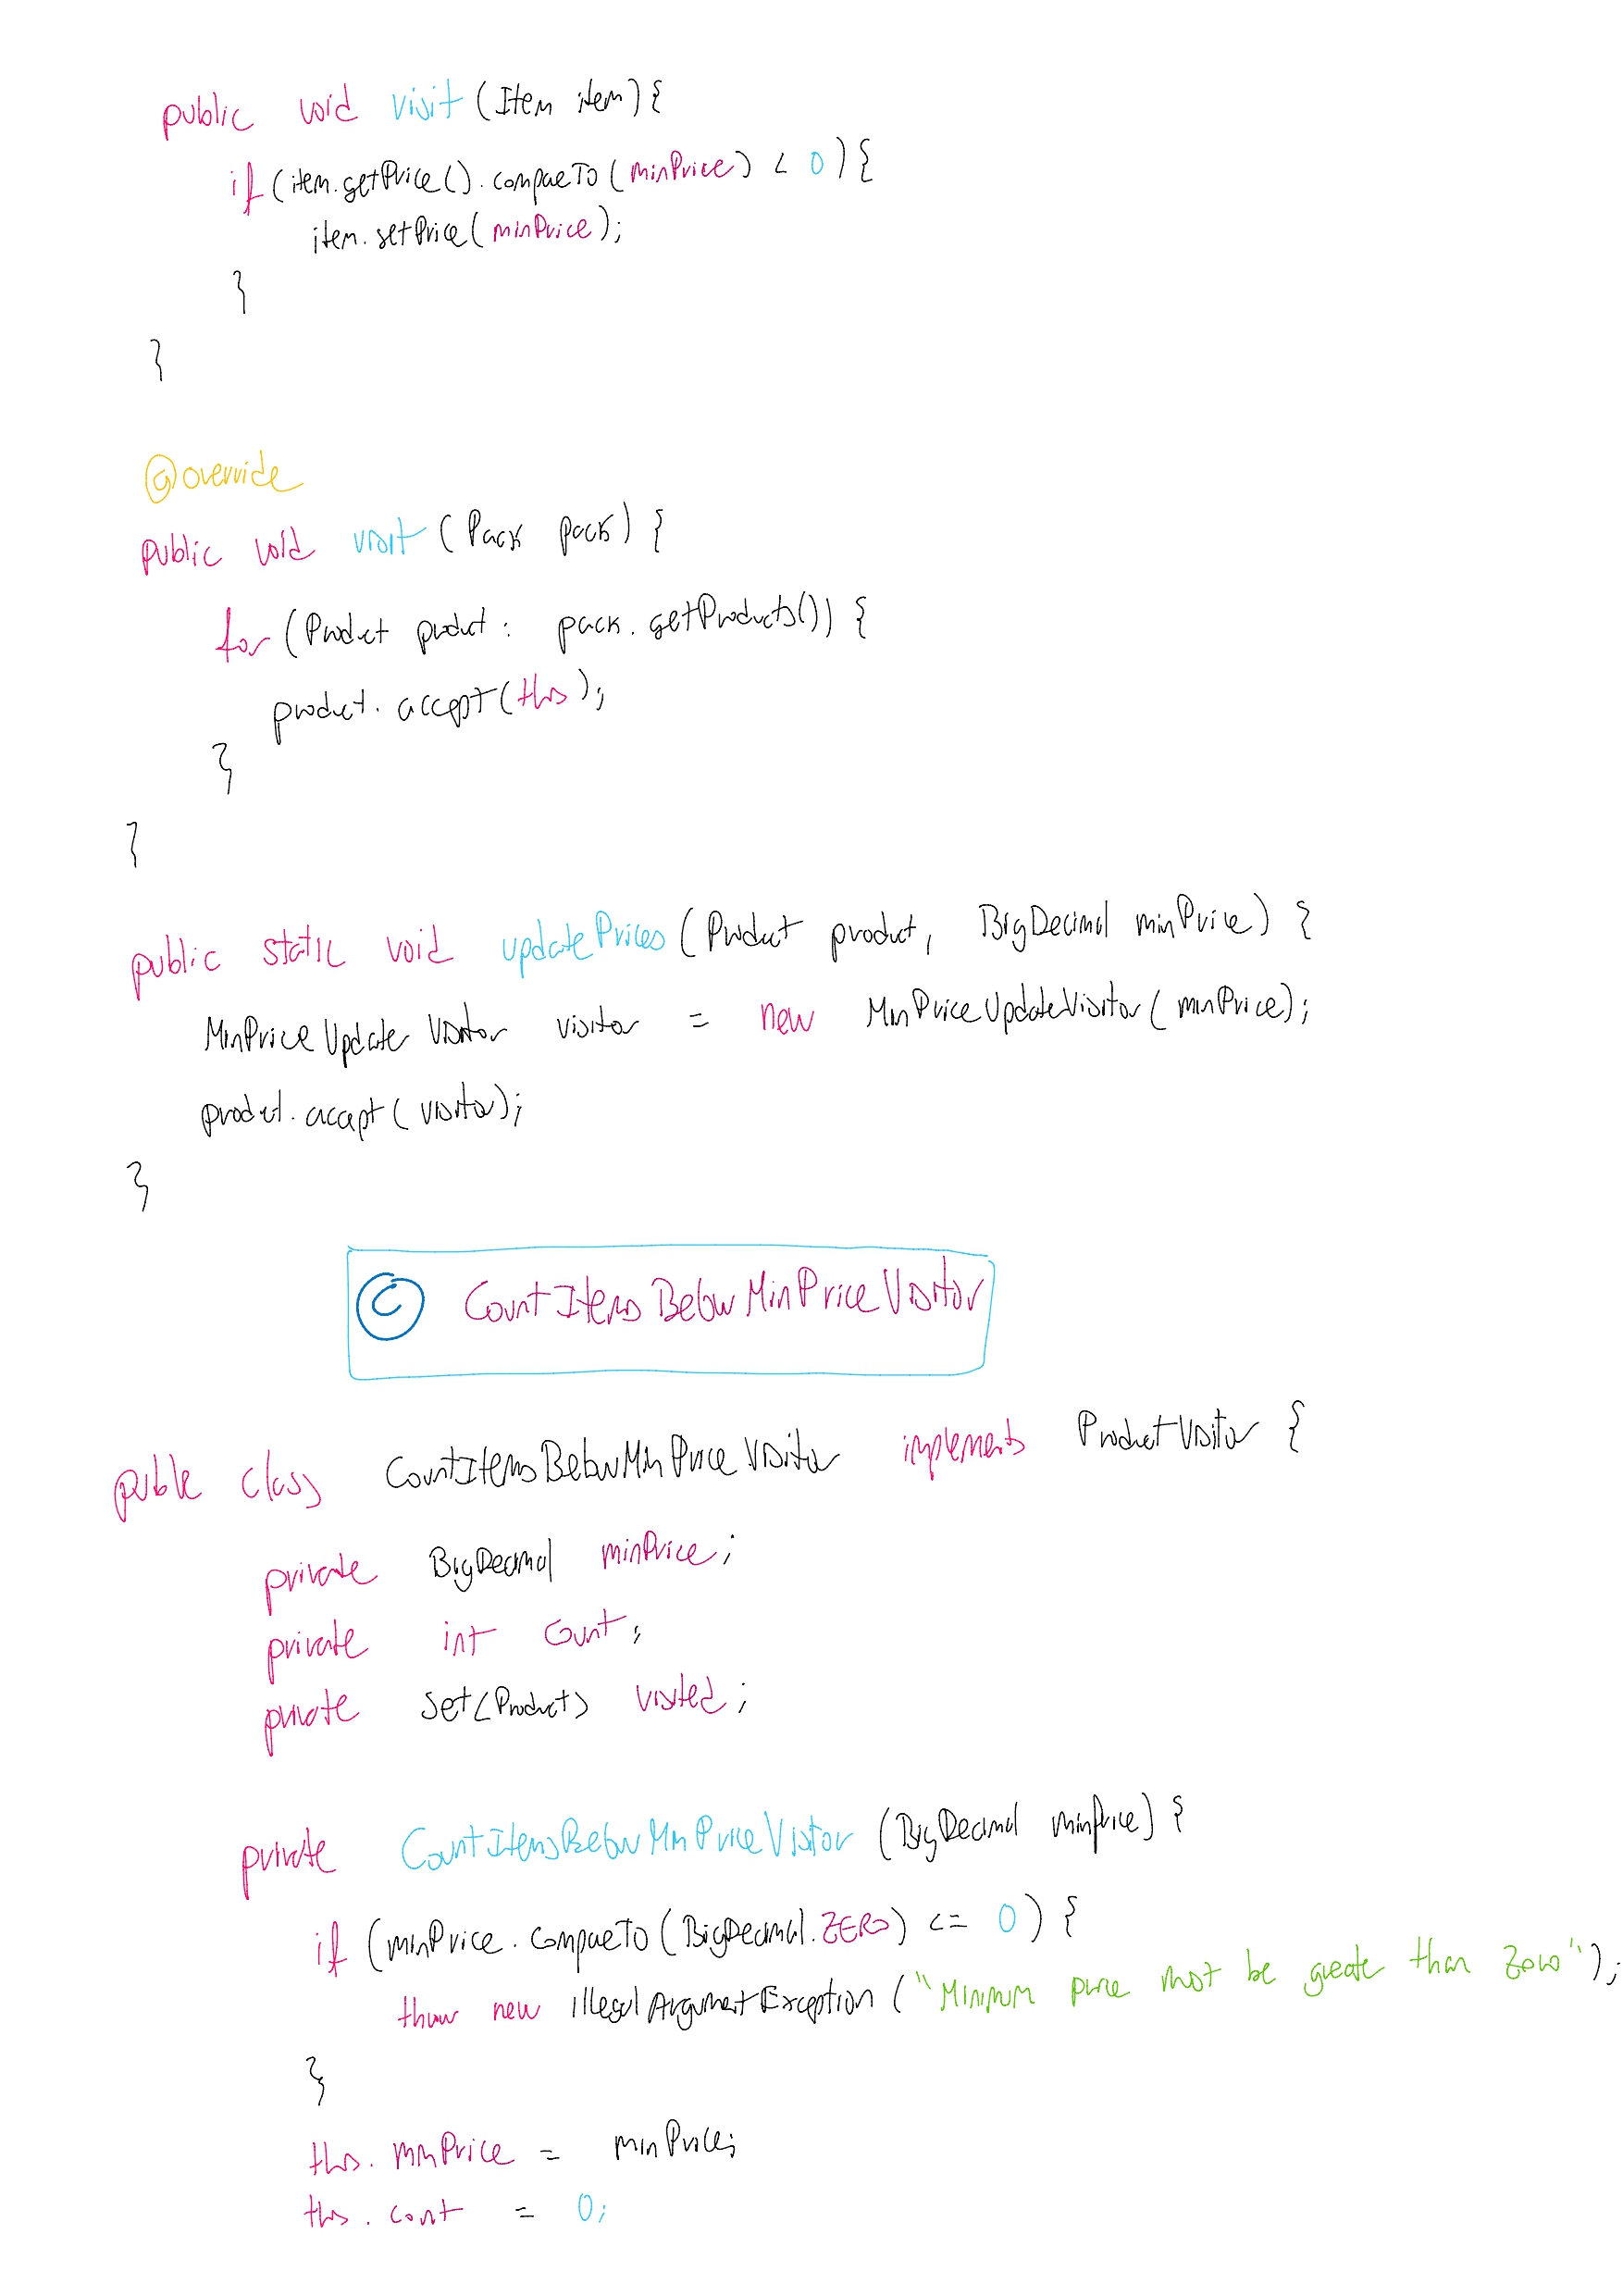 public void visit (Item item) {
if (item.getPrice().compareTo(minPrice) < 0) {
item.setPrice(minPrice);
}
}
@override
public void visit (Pack pack) {
for (Product product : pack.getProducts()) {
product.accept(this);
}
}
public static void updatePrices (Product product, BigDecimal minPrice) {
MinPriceUpdateVisitor visitor = new MinPriceUpdateVisitor(minPrice);
product.accept(visitor);
}
© CountItemsBelowMinPriceVisitor
public class CountItemsBelowMinPriceVisitor implements ProductVisitor {
private BigDecimal minPrice;
private int count;
private Set<Product> visited;
private CountItemsBelowMinPriceVisitor (BigDecimal minPrice) {
if (minPrice.compareTo(BigDecimal.ZERO) <= 0) {
throw new IllegalArgumentException("Minimum price must be greater than zero");
}
this.minPrice = minPrice;
this.count = 0;